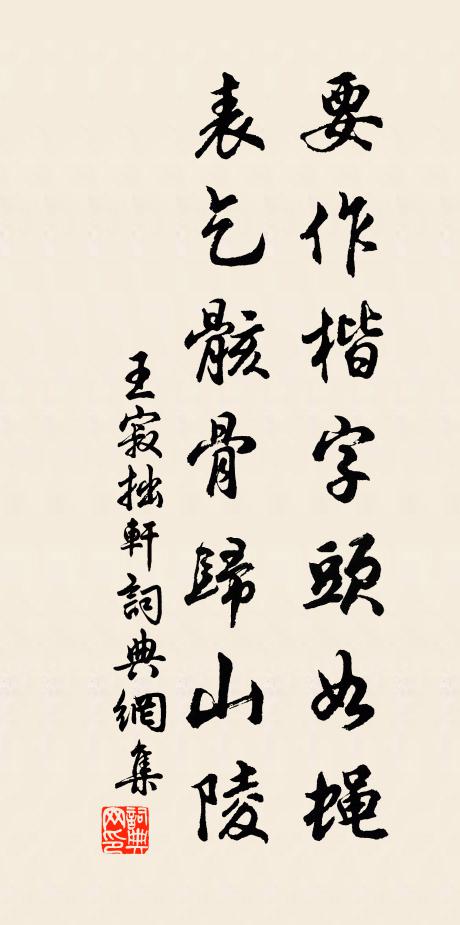 要作楷字頭如蝇
表乞骸骨歸山陵
王寂拙軒詞典網集
詞典网印